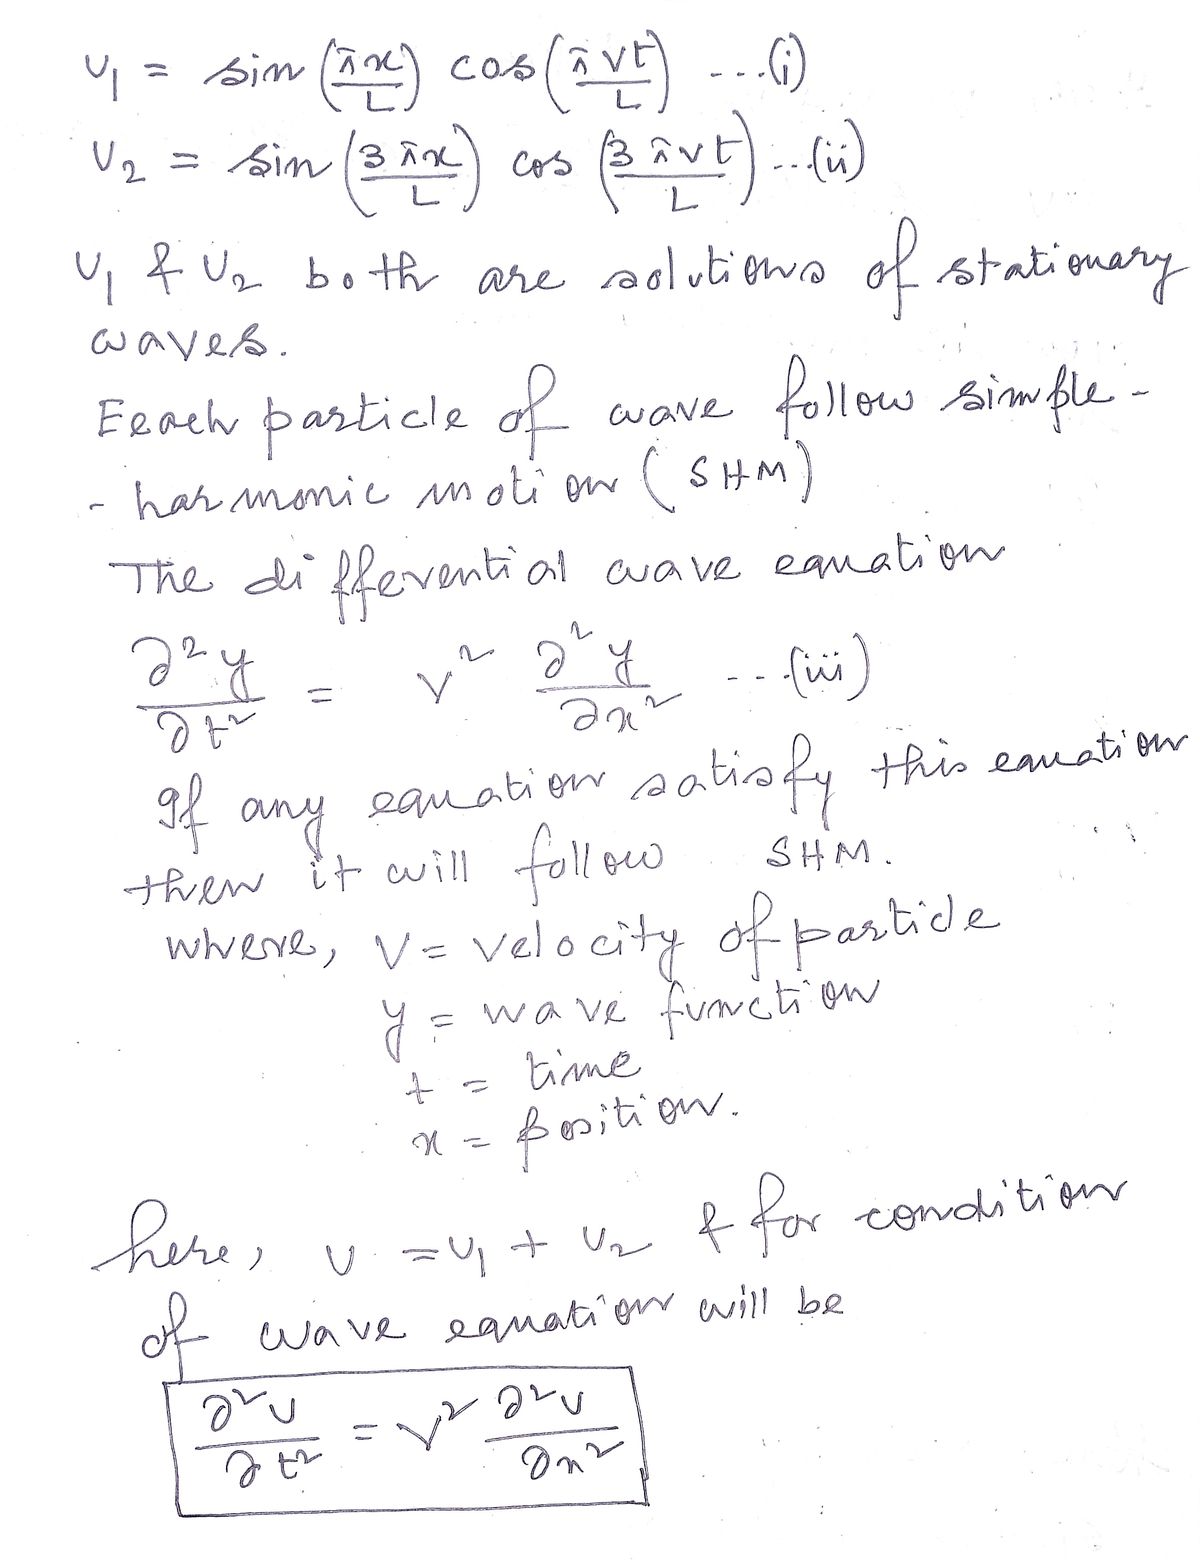 U₁ = sin (πx/L) cos (πvt/L) ...(i)
U₂ = sin (3πx/L) cos (3πvt/L) ...(ii)
U₁ & U₂ both are solutions of stationary
waves.
Eeach particle of wave follow simple -
- harmonic motion (SHM)
The differential wave equation
∂²y/∂t² = v² ∂²y/∂x² ...(iii)
If any equation satisfy this equation
then it will follow SHM.
where, V = velocity of particle
y = wave function
t = time
x = position.
here, U = U₁ + U₂ & for condition
of wave equation will be
∂²U/∂t² = V² ∂²U/∂x²